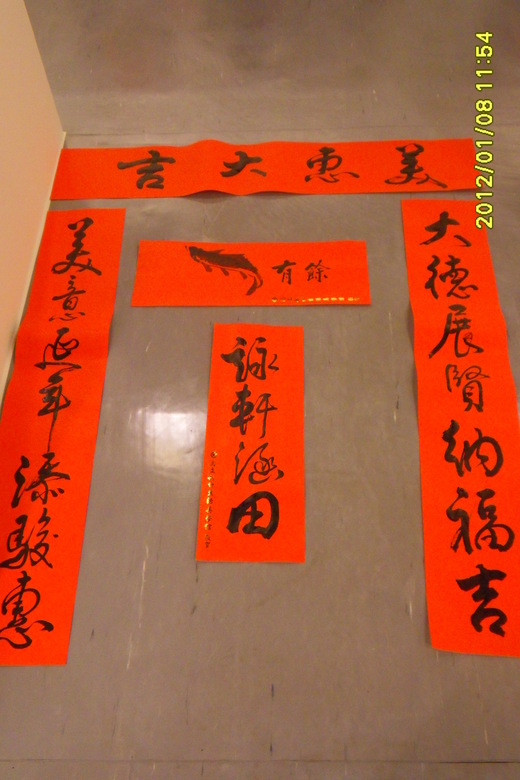 美惠大吉
大德展賢納福吉
美意延年添駿惠
有餘
詠軒涵田
2012/01/08 11:54